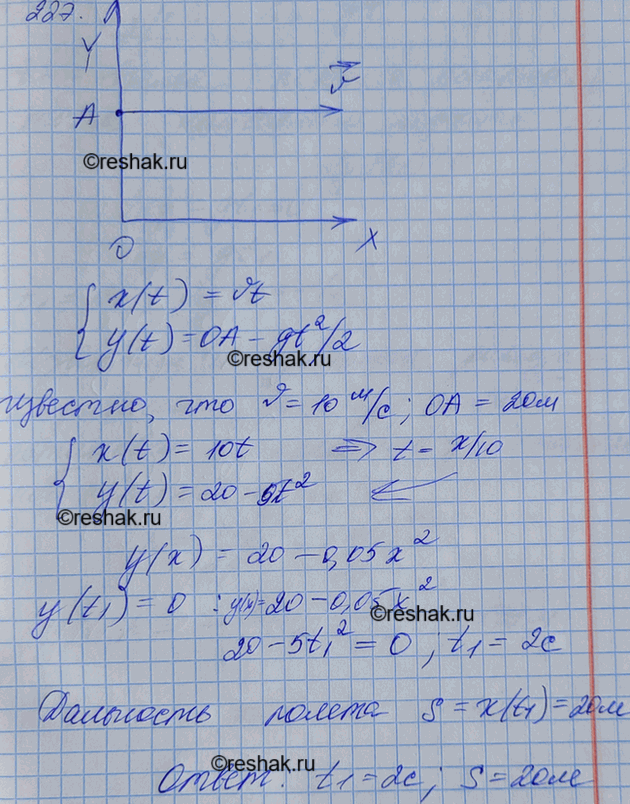 227.
Y
v
A
©reshak.ru
O
X
x(t) = vt
y(t) = OA - gt²/2
©reshak.ru
известно, что v = 10 м/с; OA = 20м
x(t) = 10t => t = x/10
y(t) = 20 - 5t²
©reshak.ru
y(x) = 20 - 0,05x²
y(t₁) = 0 : y(x) = 20 - 0,05x²
©reshak.ru
20 - 5t₁² = 0; t₁ = 2с
Дальность полета S = x(t₁) = 20м
©reshak.ru
Ответ: t₁ = 2с; S = 20м